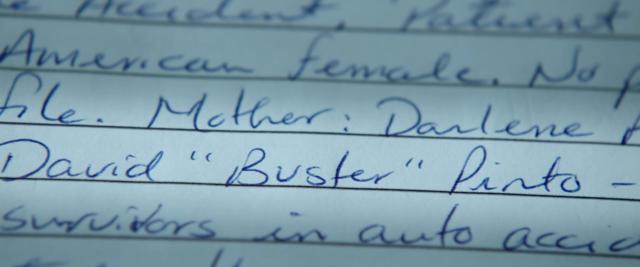 Accident. Patient
American female. No
file. Mother: Darlene
David "Buster" Pinto -
survivors in auto